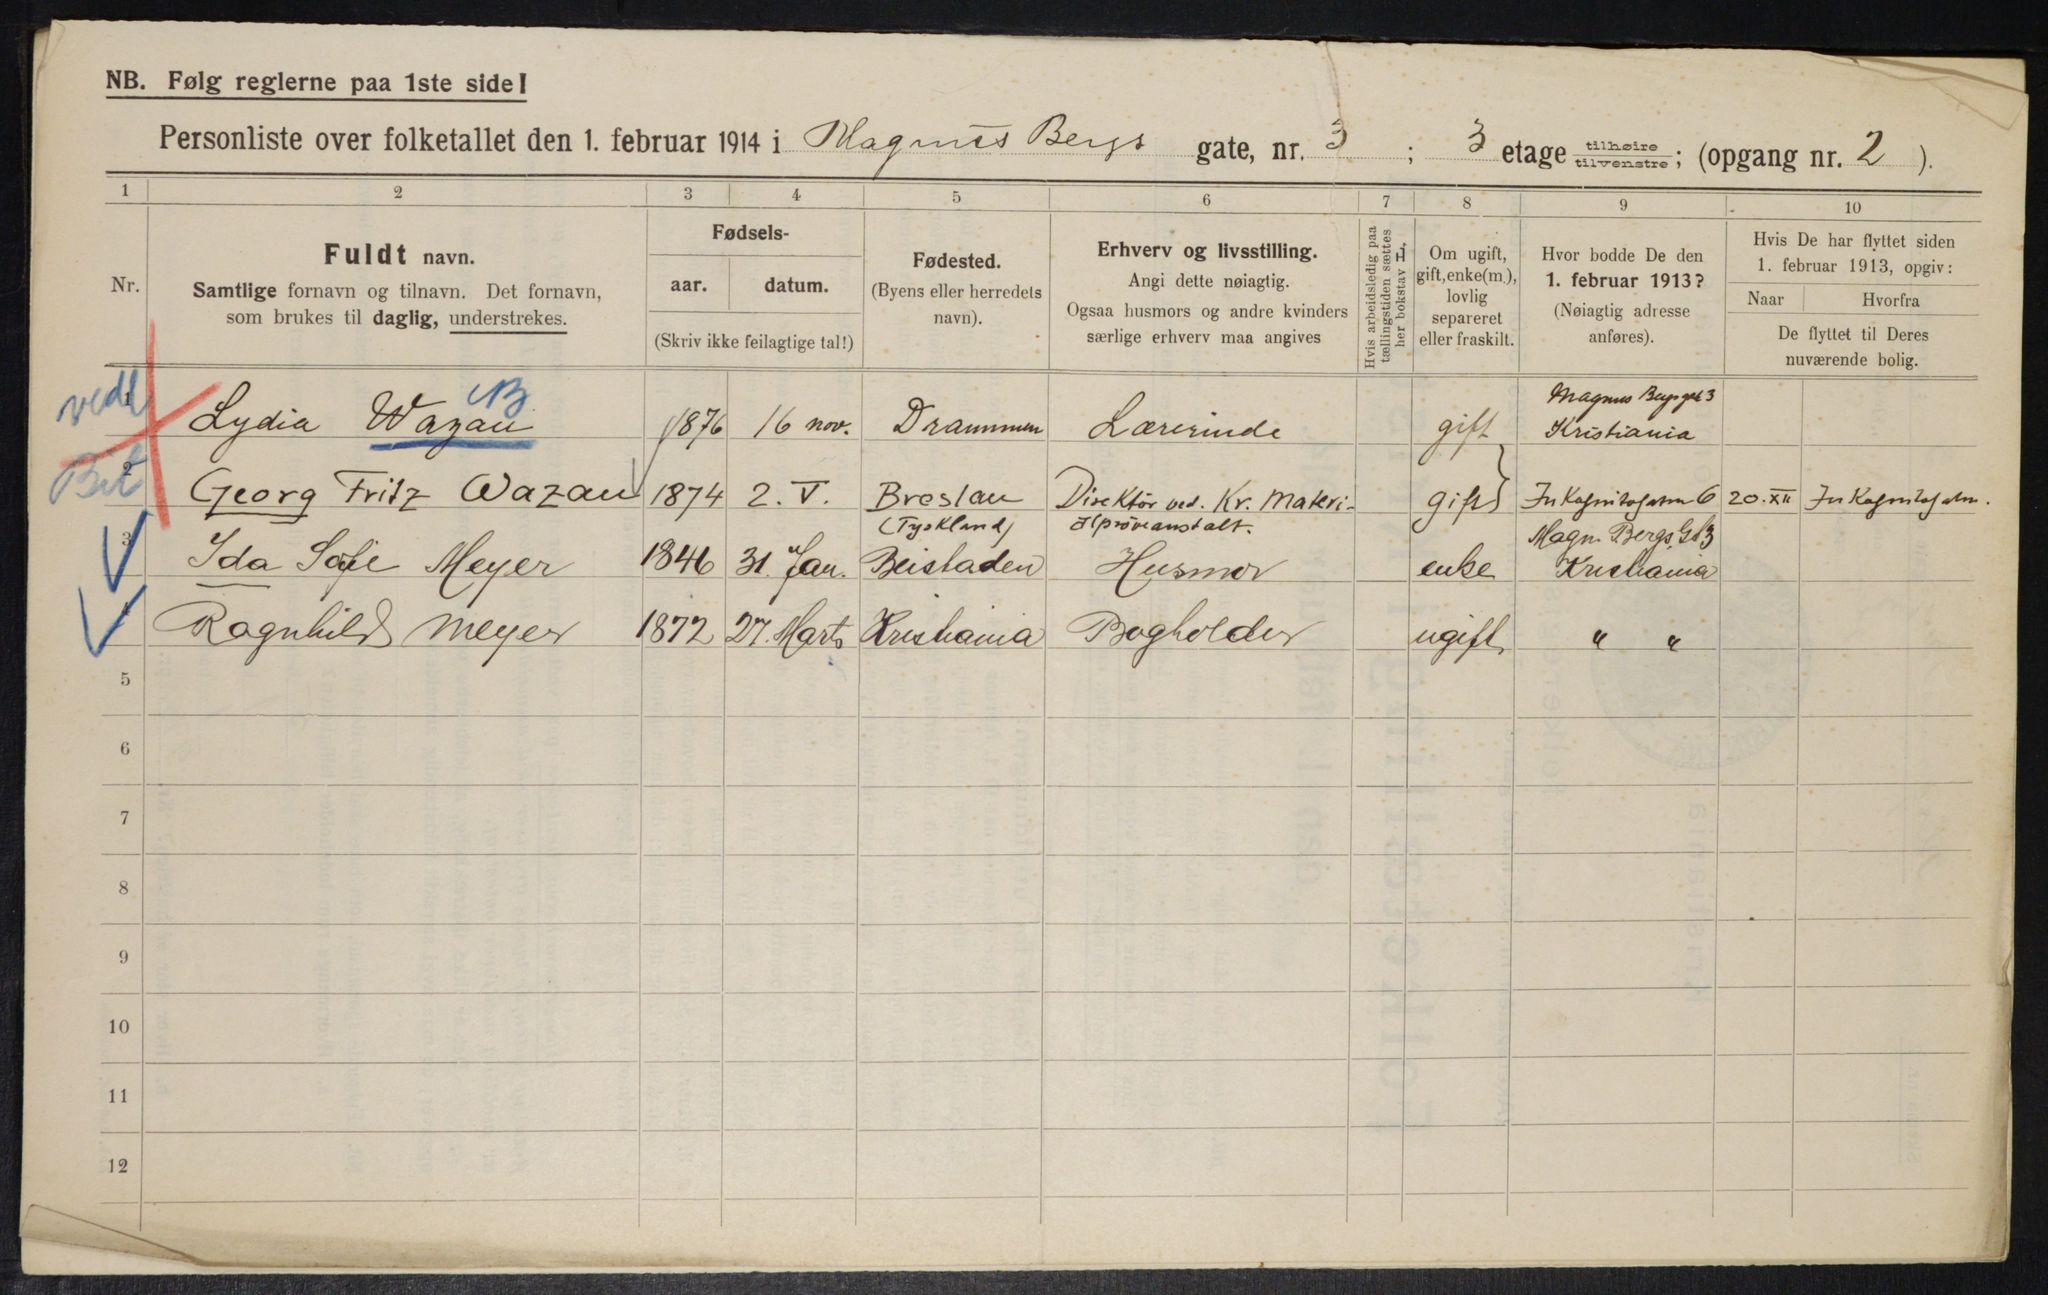 NB. Følg reglerne paa 1ste side!
Personliste over folketallet den 1. februar 1914 i Magnus Bergs gate, nr. 3 ; 3 etage tilhøire tilvenstre ; (opgang nr. 2 ).
1 2 3 4 5 6 7 8 9 10
Nr.
Fuldt navn.
Samtlige fornavn og tilnavn. Det fornavn,
som brukes til daglig, understrekes.
Fødsels-
aar. datum.
(Skriv ikke feilagtige tal!)
Fødested.
(Byens eller herredets
navn).
Erhverv og livsstilling.
Angi dette nøiagtig.
Ogsaa husmors og andre kvinders
særlige erhverv maa angives
Hvis arbeidsledig paa
tællingstiden sættes
her bokstav L.
Om ugift,
gift, enke(m.),
lovlig
separeret
eller fraskilt.
Hvor bodde De den
1. februar 1913?
(Nøiagtig adresse
anføres).
Hvis De har flyttet siden
1. februar 1913, opgiv:
Naar Hvorfra
De flyttet til Deres
nuværende bolig.
1 Lydia Wazau 1876 16 nov. Drammen Lærerinde gift Magnus Bergsgt 3
Kristiania
2 Georg Fritz Wazau 1874 2. V. Breslau Direktör ved. Kr. Materi- gift 6 20. XII
(Tyskland) alpröveanstalt.
3 Ida Sofie Meyer 1846 31. Jan. Beistaden Husmor enke Magn. Bergs Gt 3
Kristiania
4 Ragnhild Meyer 1872 27. Marts Kristiania Bogholder ugift " "
5
6
7
8
9
10
11
12